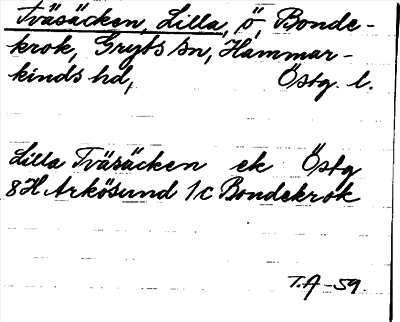 Tväsäcken, Lilla, ö, Bonde-
krok, Gryts sn, Hammar-
kinds hd, Östg. l.
Lilla Tväsäcken ek Östg
8H Arkösund 1c Bondekrok
T.A-59.